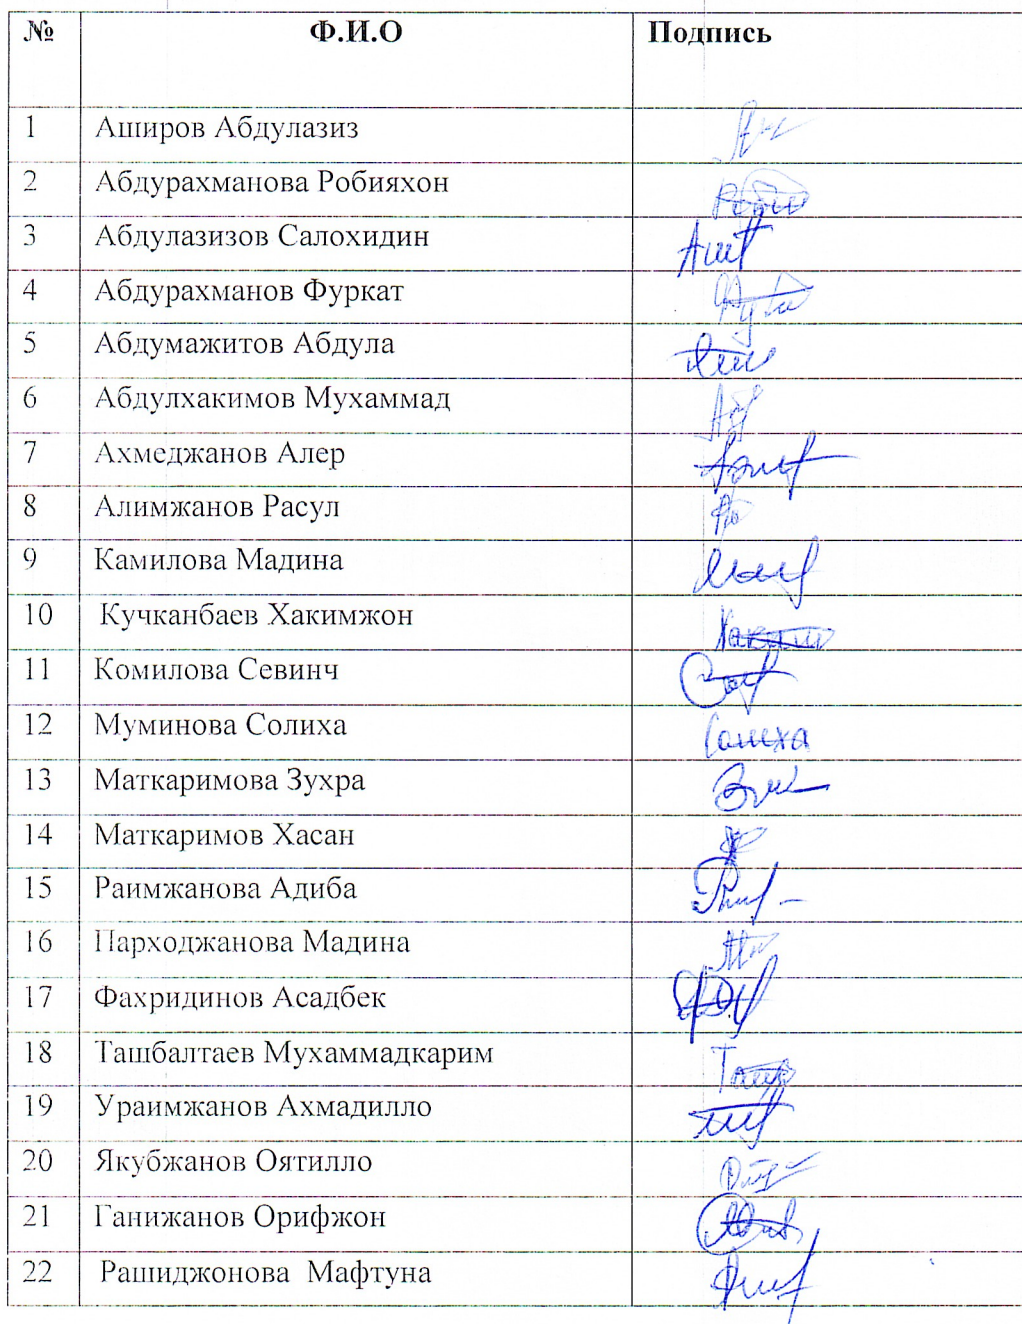 № Ф.И.О Подпись
1 Аширов Абдулазиз
2 Абдурахманова Робияхон
3 Абдулазизов Салохидин
4 Абдурахманов Фуркат
5 Абдумажитов Абдула
6 Абдулхакимов Мухаммад
7 Ахмеджанов Алер
8 Алимжанов Расул
9 Камилова Мадина
10 Кучканбаев Хакимжон
11 Комилова Севинч
12 Муминова Солиха Солиха
13 Маткаримова Зухра
14 Маткаримов Хасан
15 Раимжанова Адиба
16 Парходжанова Мадина
17 Фахридинов Асадбек
18 Ташбалтаев Мухаммадкарим
19 Ураимжанов Ахмадилло
20 Якубжанов Оятилло
21 Ганижанов Орифжон
22 Рашиджонова Мафтуна